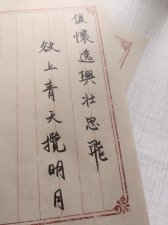 俱懷逸興壯思飛
欲上青天攬明月